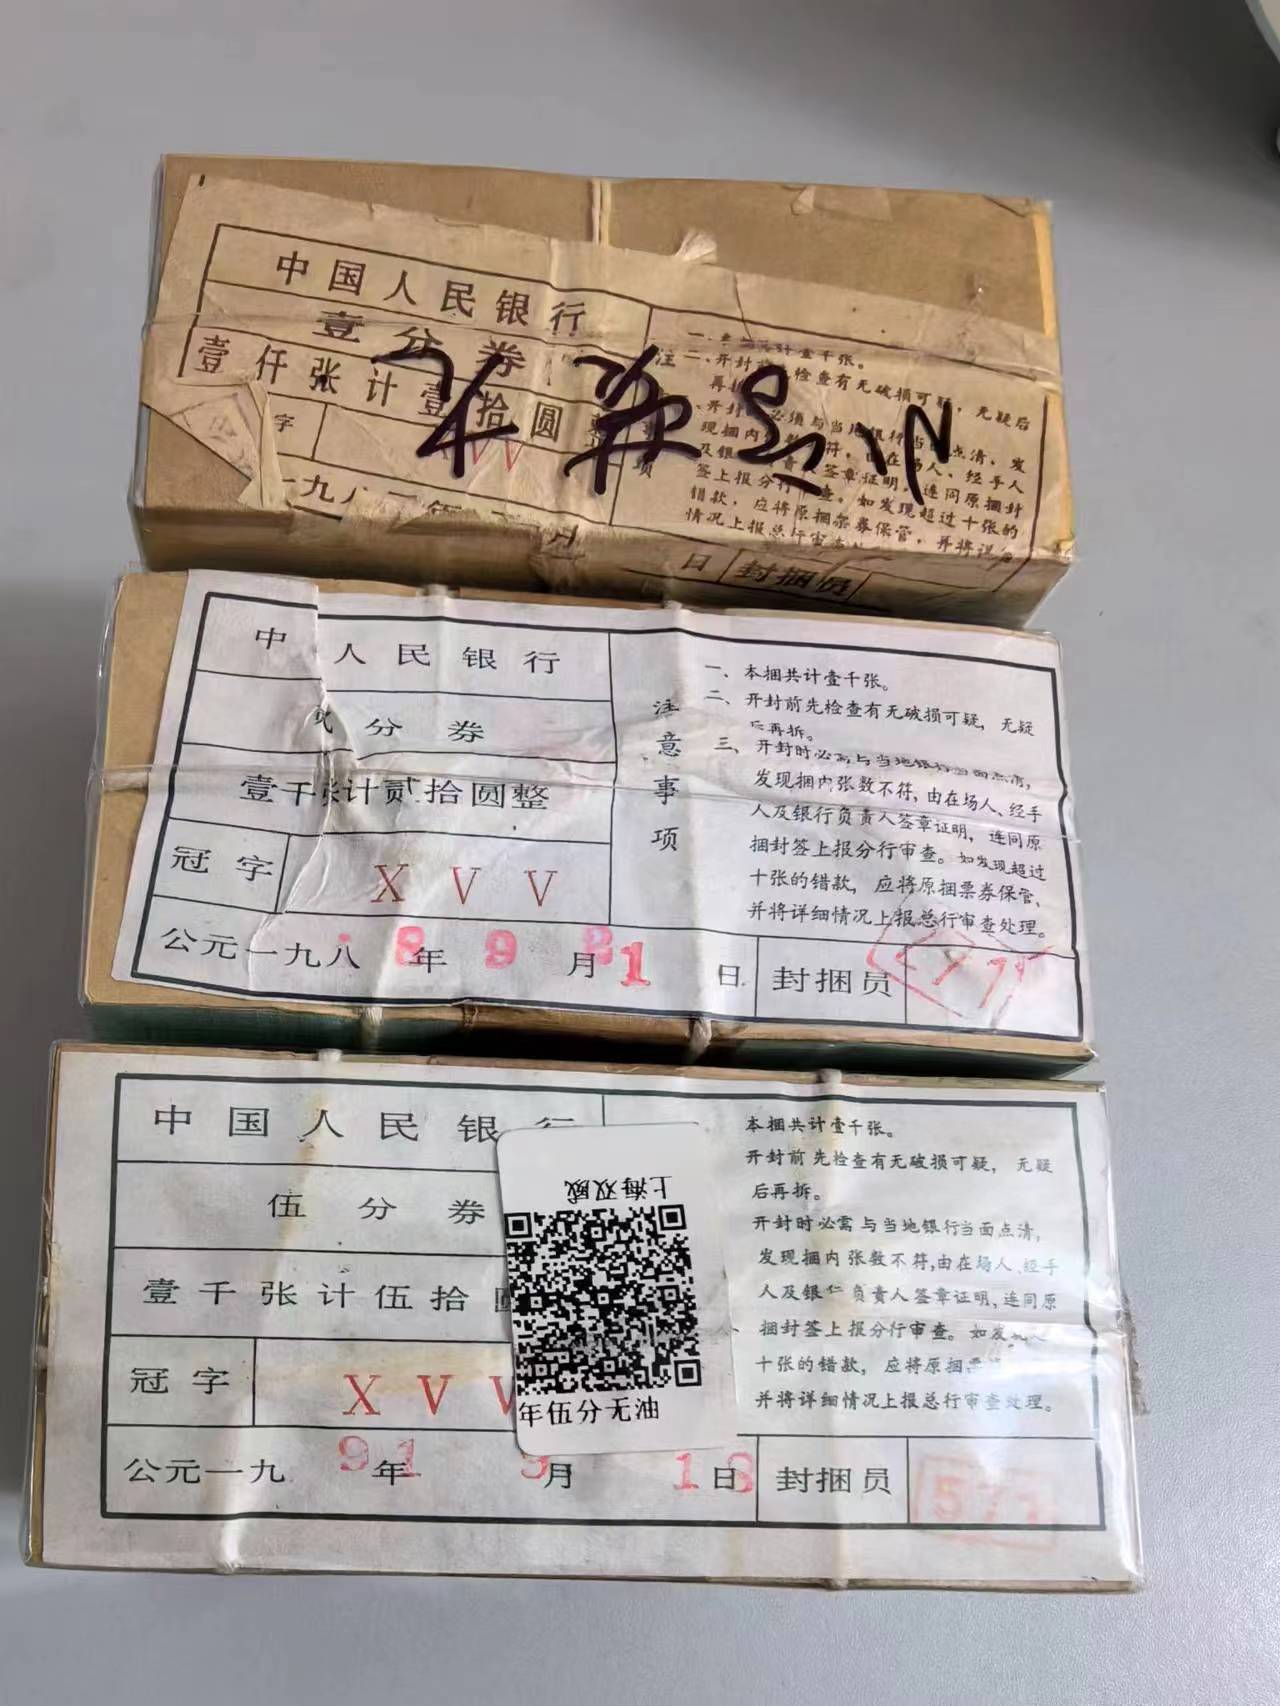 中国人民银行
壹分券
壹仟张计壹拾圆整
字
VV
一九八
年
月
日
封捆员
注
事
项
一、本捆共计壹千张。
二、开封前先检查有无破损可疑,无疑后
再拆
、开封时必须与当地银行当面点清,发
现捆内张数不符,由在场人、经手人
及银行负责人签章证明,连同原捆封
签上报分行审查。如发现超过十张的
错款,应将原捆票券保管,并将详细
情况上报总行审查
中 人民银行
贰分券
壹千张计贰拾圆整
冠字
XVV
公元一九八8年9月21日
封捆员
注意事项
一、本捆共计壹千张。
二、开封前先检查有无破损可疑,无疑
后再拆。
三、开封时必需与当地银行当面点清,
发现捆内张数不符,由在场人、经手
人及银行负责人签章证明,连同原
捆封签上报分行审查。如发现超过
十张的错款,应将原捆票券保管,
并将详细情况上报总行审查处理。
中国人民银行
伍分券
壹千张计伍拾圆
冠字
XVV
公元一九91年9月18日
封捆员
577
本捆共计壹千张。
开封前先检查有无破损可疑,无疑
后再拆。
开封时必需与当地银行当面点清,
发现捆内张数不符,由在场人、经手
人及银行负责人签章证明,连同原
捆封签上报分行审查。如发
十张的错款,应将原捆票
并将详细情况上报总行审查处理。
上海双威
年伍分无油